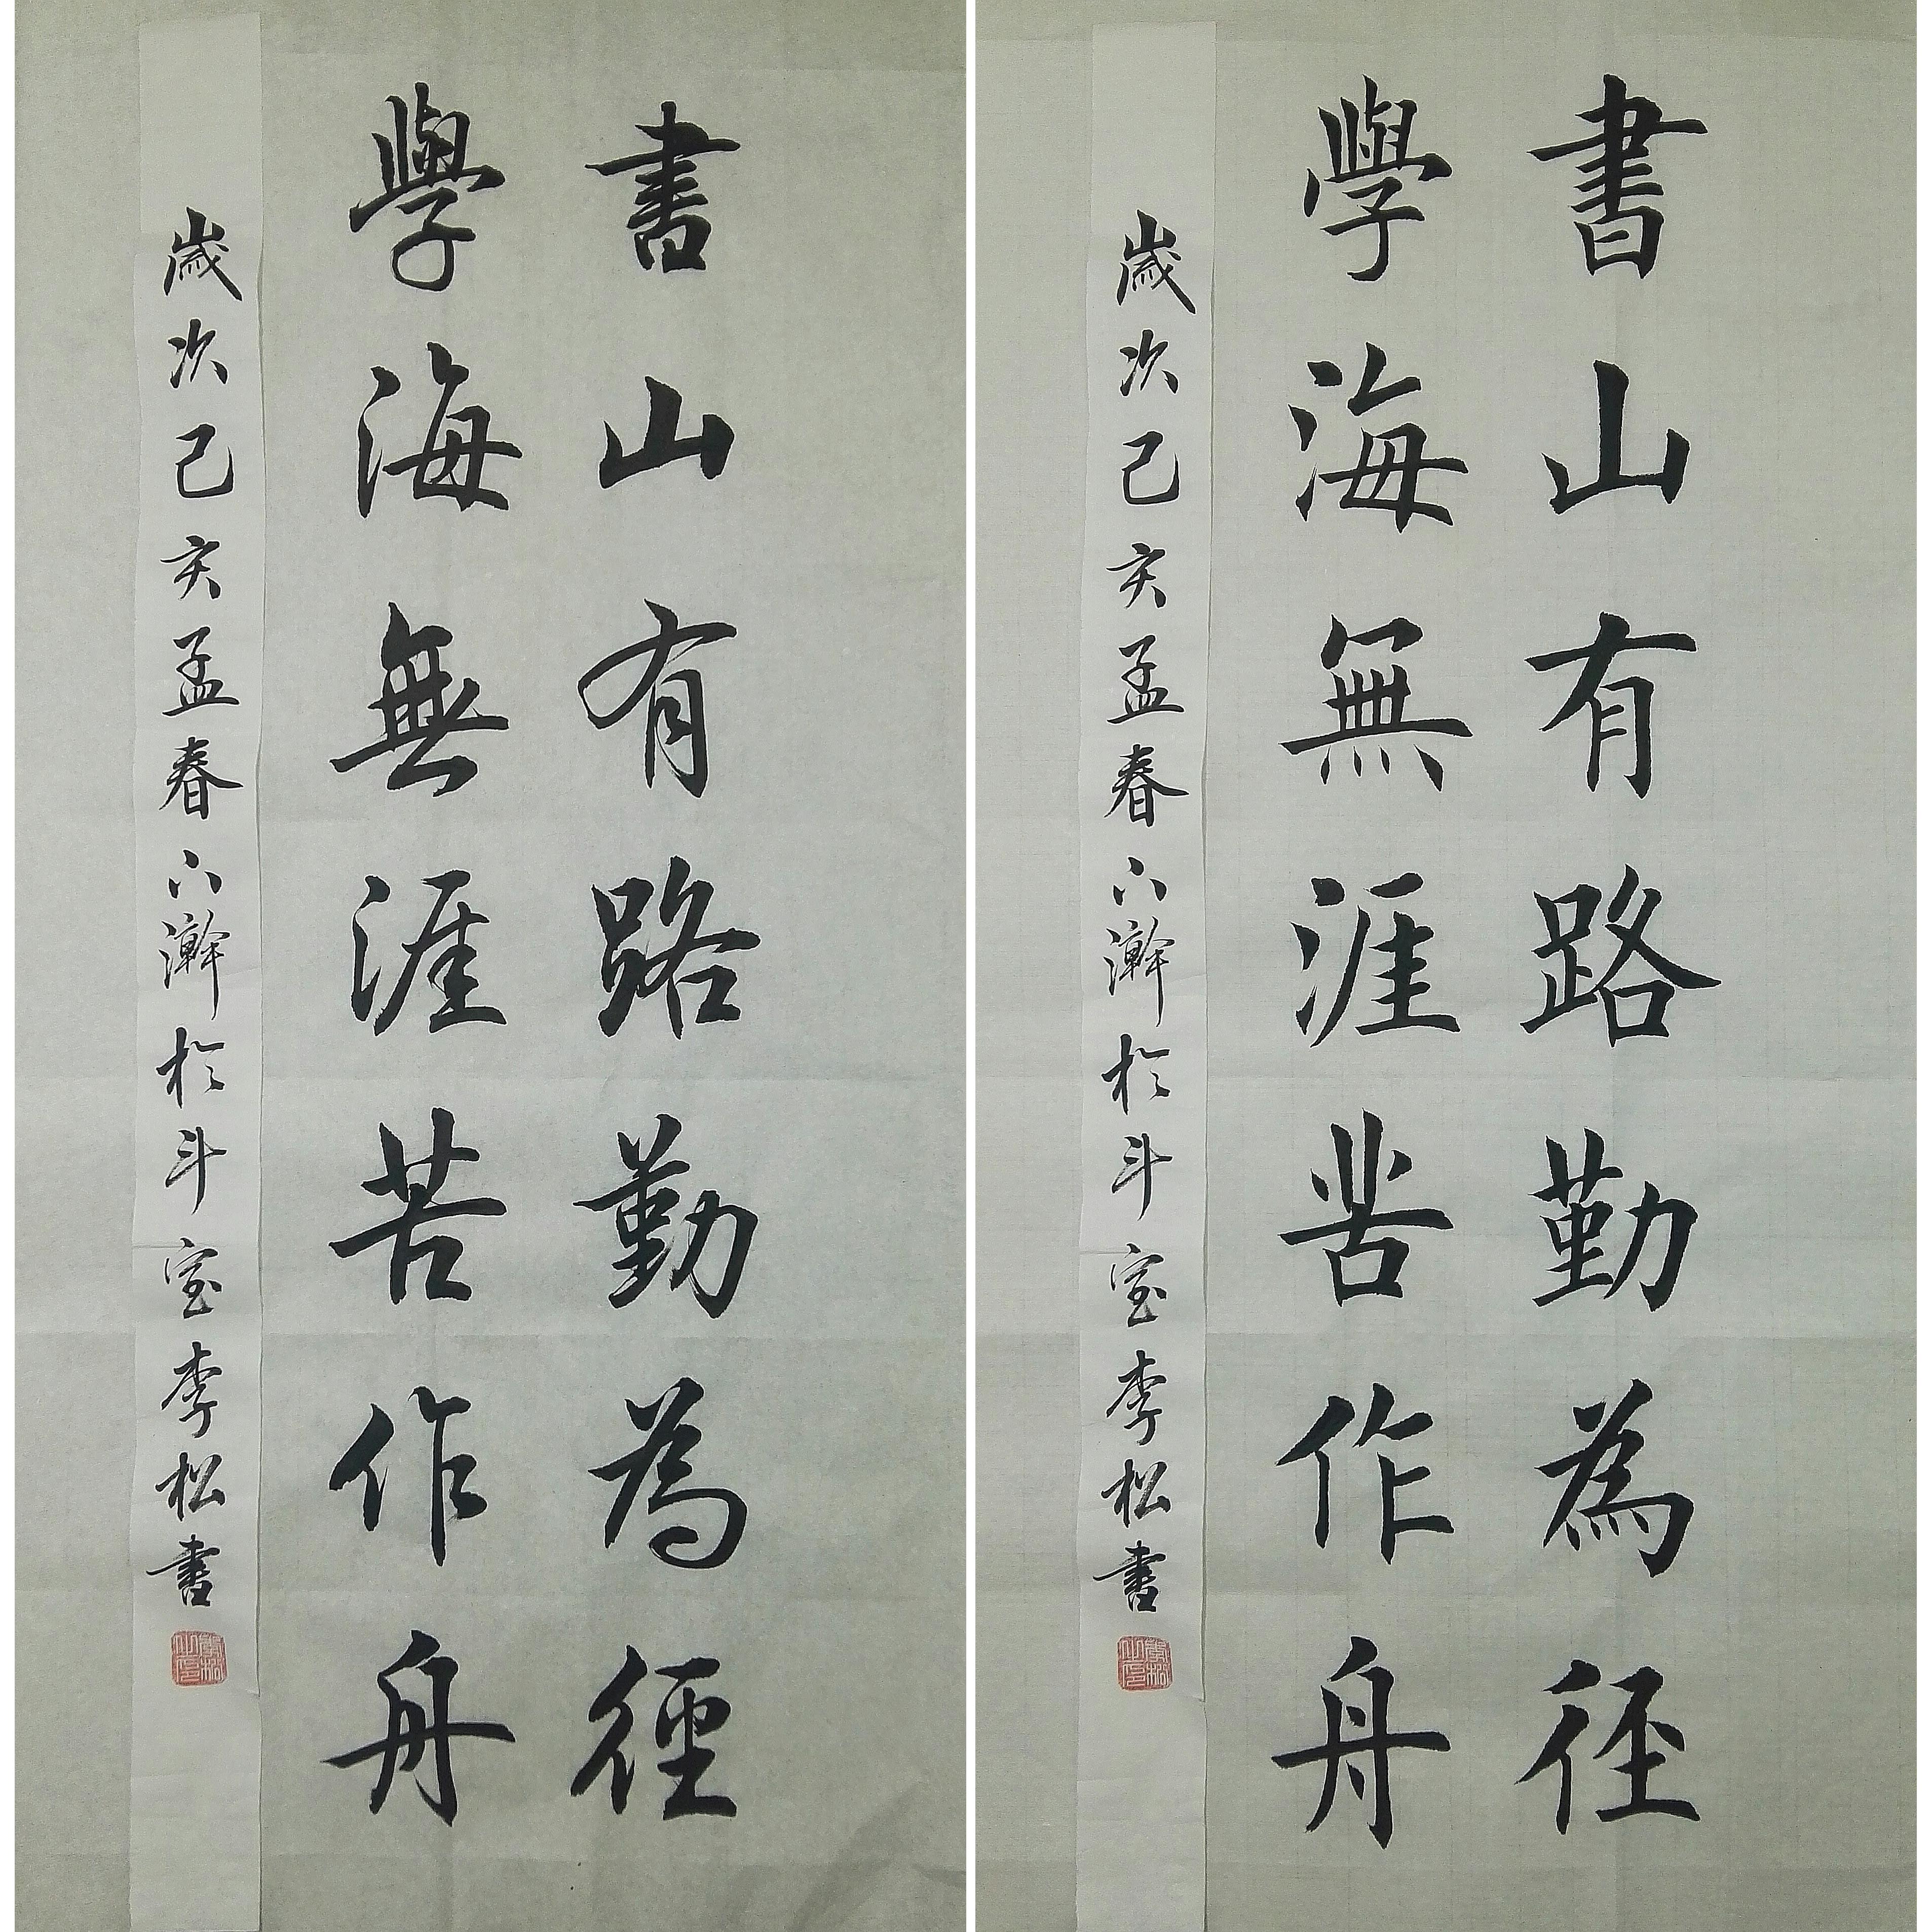 書山有路勤為徑
學海無涯苦作舟
歲次己亥孟春下澣於斗室李松書
書山有路勤為徑
學海無涯苦作舟
歲次己亥孟春下澣於斗室李松書